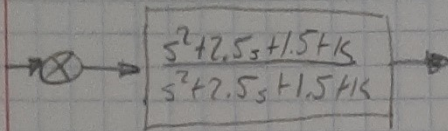 s²+2.5s+1.5+K
s²+2.5s+1.5+K